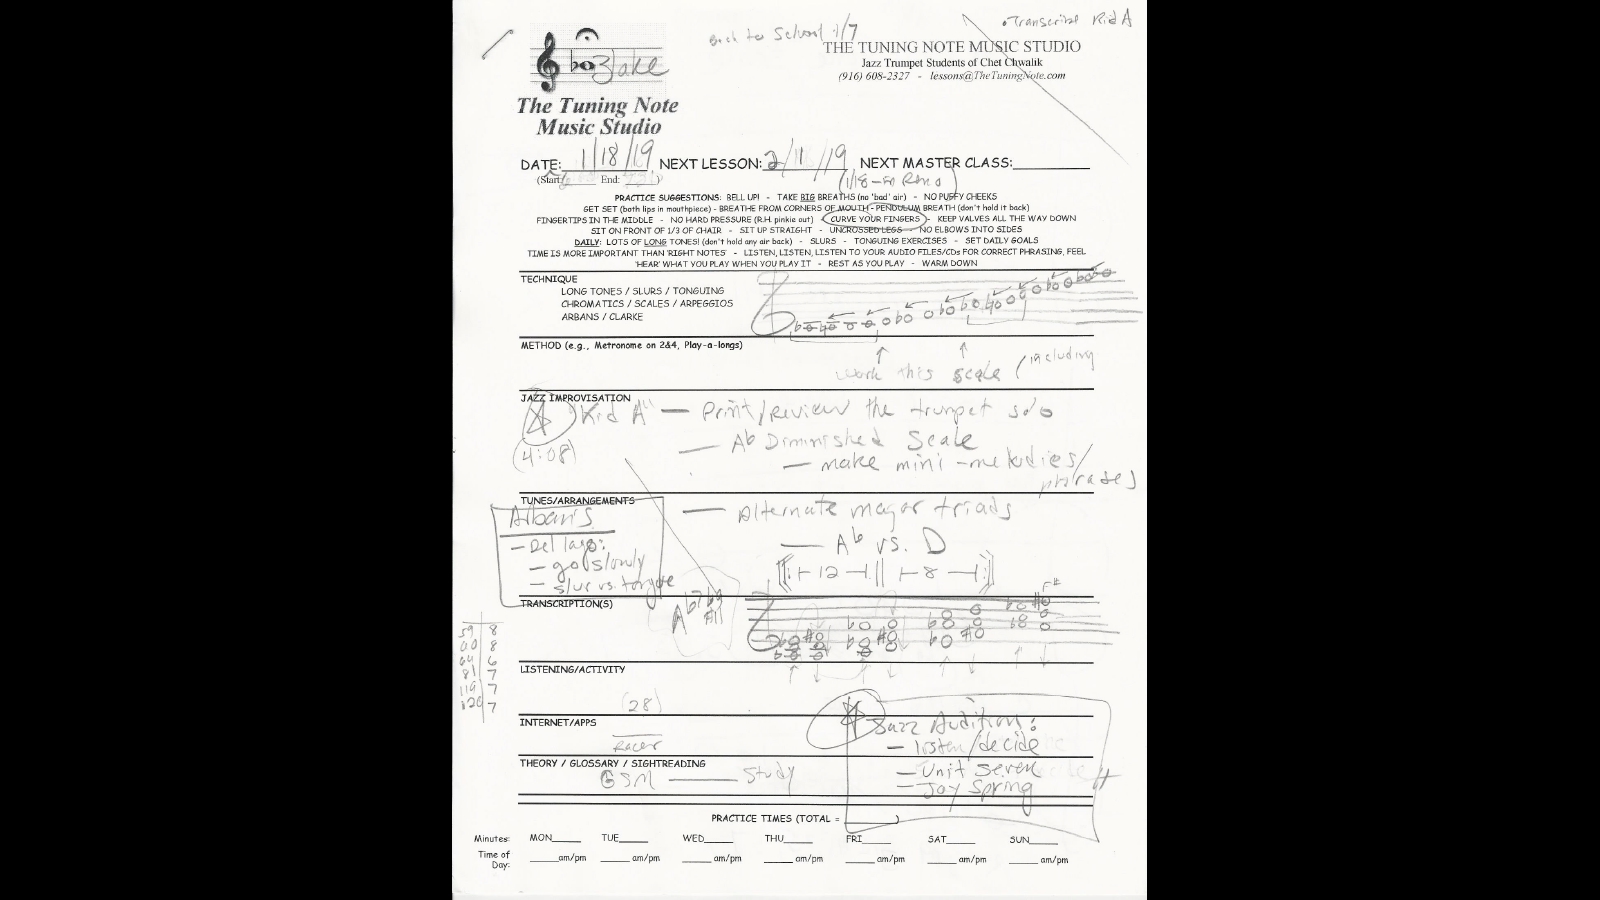 Back to School 1/7
• Transcribe Kid A
THE TUNING NOTE MUSIC STUDIO
Jazz Trumpet Students of Chet Chwalik
(916) 608-2327 - lessons@TheTuningNote.com
Jake
The Tuning Note
Music Studio
DATE: 1/18/19 NEXT LESSON: 2/1/19 NEXT MASTER CLASS:
(Start: End: )
(1/18 - Reno)
PRACTICE SUGGESTIONS: BELL UP! - TAKE BIG BREATHS (no 'bad' air) - NO PUFFY CHEEKS
GET SET (both lips in mouthpiece) - BREATHE FROM CORNERS OF MOUTH - PENDULUM BREATH (don't hold it back)
FINGERTIPS IN THE MIDDLE - NO HARD PRESSURE (R.H. pinkie out) - CURVE YOUR FINGERS - KEEP VALVES ALL THE WAY DOWN
SIT ON FRONT OF 1/3 OF CHAIR - SIT UP STRAIGHT - UNCROSSED LEGS - NO ELBOWS INTO SIDES
DAILY: LOTS OF LONG TONES! (don't hold any air back) - SLURS - TONGUING EXERCISES - SET DAILY GOALS
TIME IS MORE IMPORTANT THAN 'RIGHT NOTES' - LISTEN, LISTEN, LISTEN TO YOUR AUDIO FILES/CDs FOR CORRECT PHRASING, FEEL
'HEAR' WHAT YOU PLAY WHEN YOU PLAY IT - REST AS YOU PLAY - WARM DOWN
TECHNIQUE
LONG TONES / SLURS / TONGUING
CHROMATICS / SCALES / ARPEGGIOS
ARBANS / CLARKE
METHOD (e.g., Metronome on 2&4, Play-a-longs)
work this scale (including
JAZZ IMPROVISATION
"Kid A" — Print/review the trumpet solo
(4:08)
— Ab Diminished Scale
— make mini-melodies/
phrases
TUNES/ARRANGEMENTS
— Alternate major triads
— Ab vs. D
12 8
Arban's
— Del lago:
— go slowly
— slur vs. tongue
TRANSCRIPTION(S)
Ab7b9
#11
F#
59 8
60 8
64 6
81 7
119 7
120 7
LISTENING/ACTIVITY
(28)
INTERNET/APPS
Racer
Jazz Audition:
— listen/decide
— Unit Seven
— Joy Spring
THEORY / GLOSSARY / SIGHTREADING
GSM — Study
PRACTICE TIMES (TOTAL = )
Minutes: MON TUE WED THU FRI SAT SUN
Time of Day: am/pm am/pm am/pm am/pm am/pm am/pm am/pm